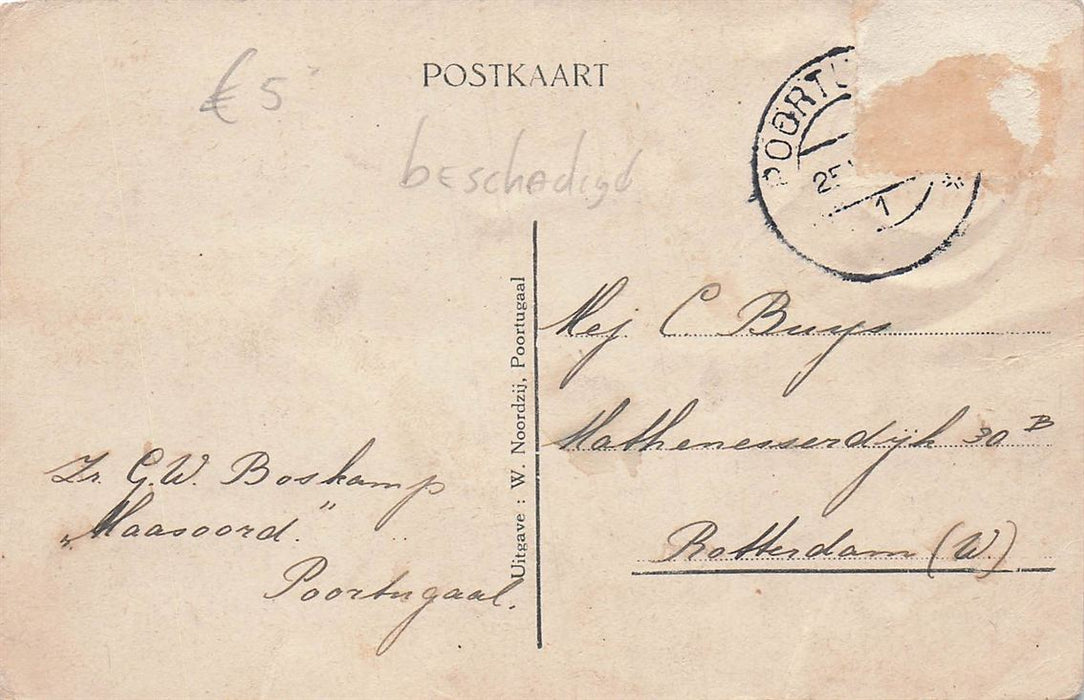 POSTKAART
€ 5
beschadigd
POORTU
25
1
Mej C. Buys
Mathenesserdijk 30 B
Rotterdam (W.)
Uitgave : W. Noordzij, Poortugaal
Zr. G.W. Boskamp
„Maasoord."
Poortugaal.